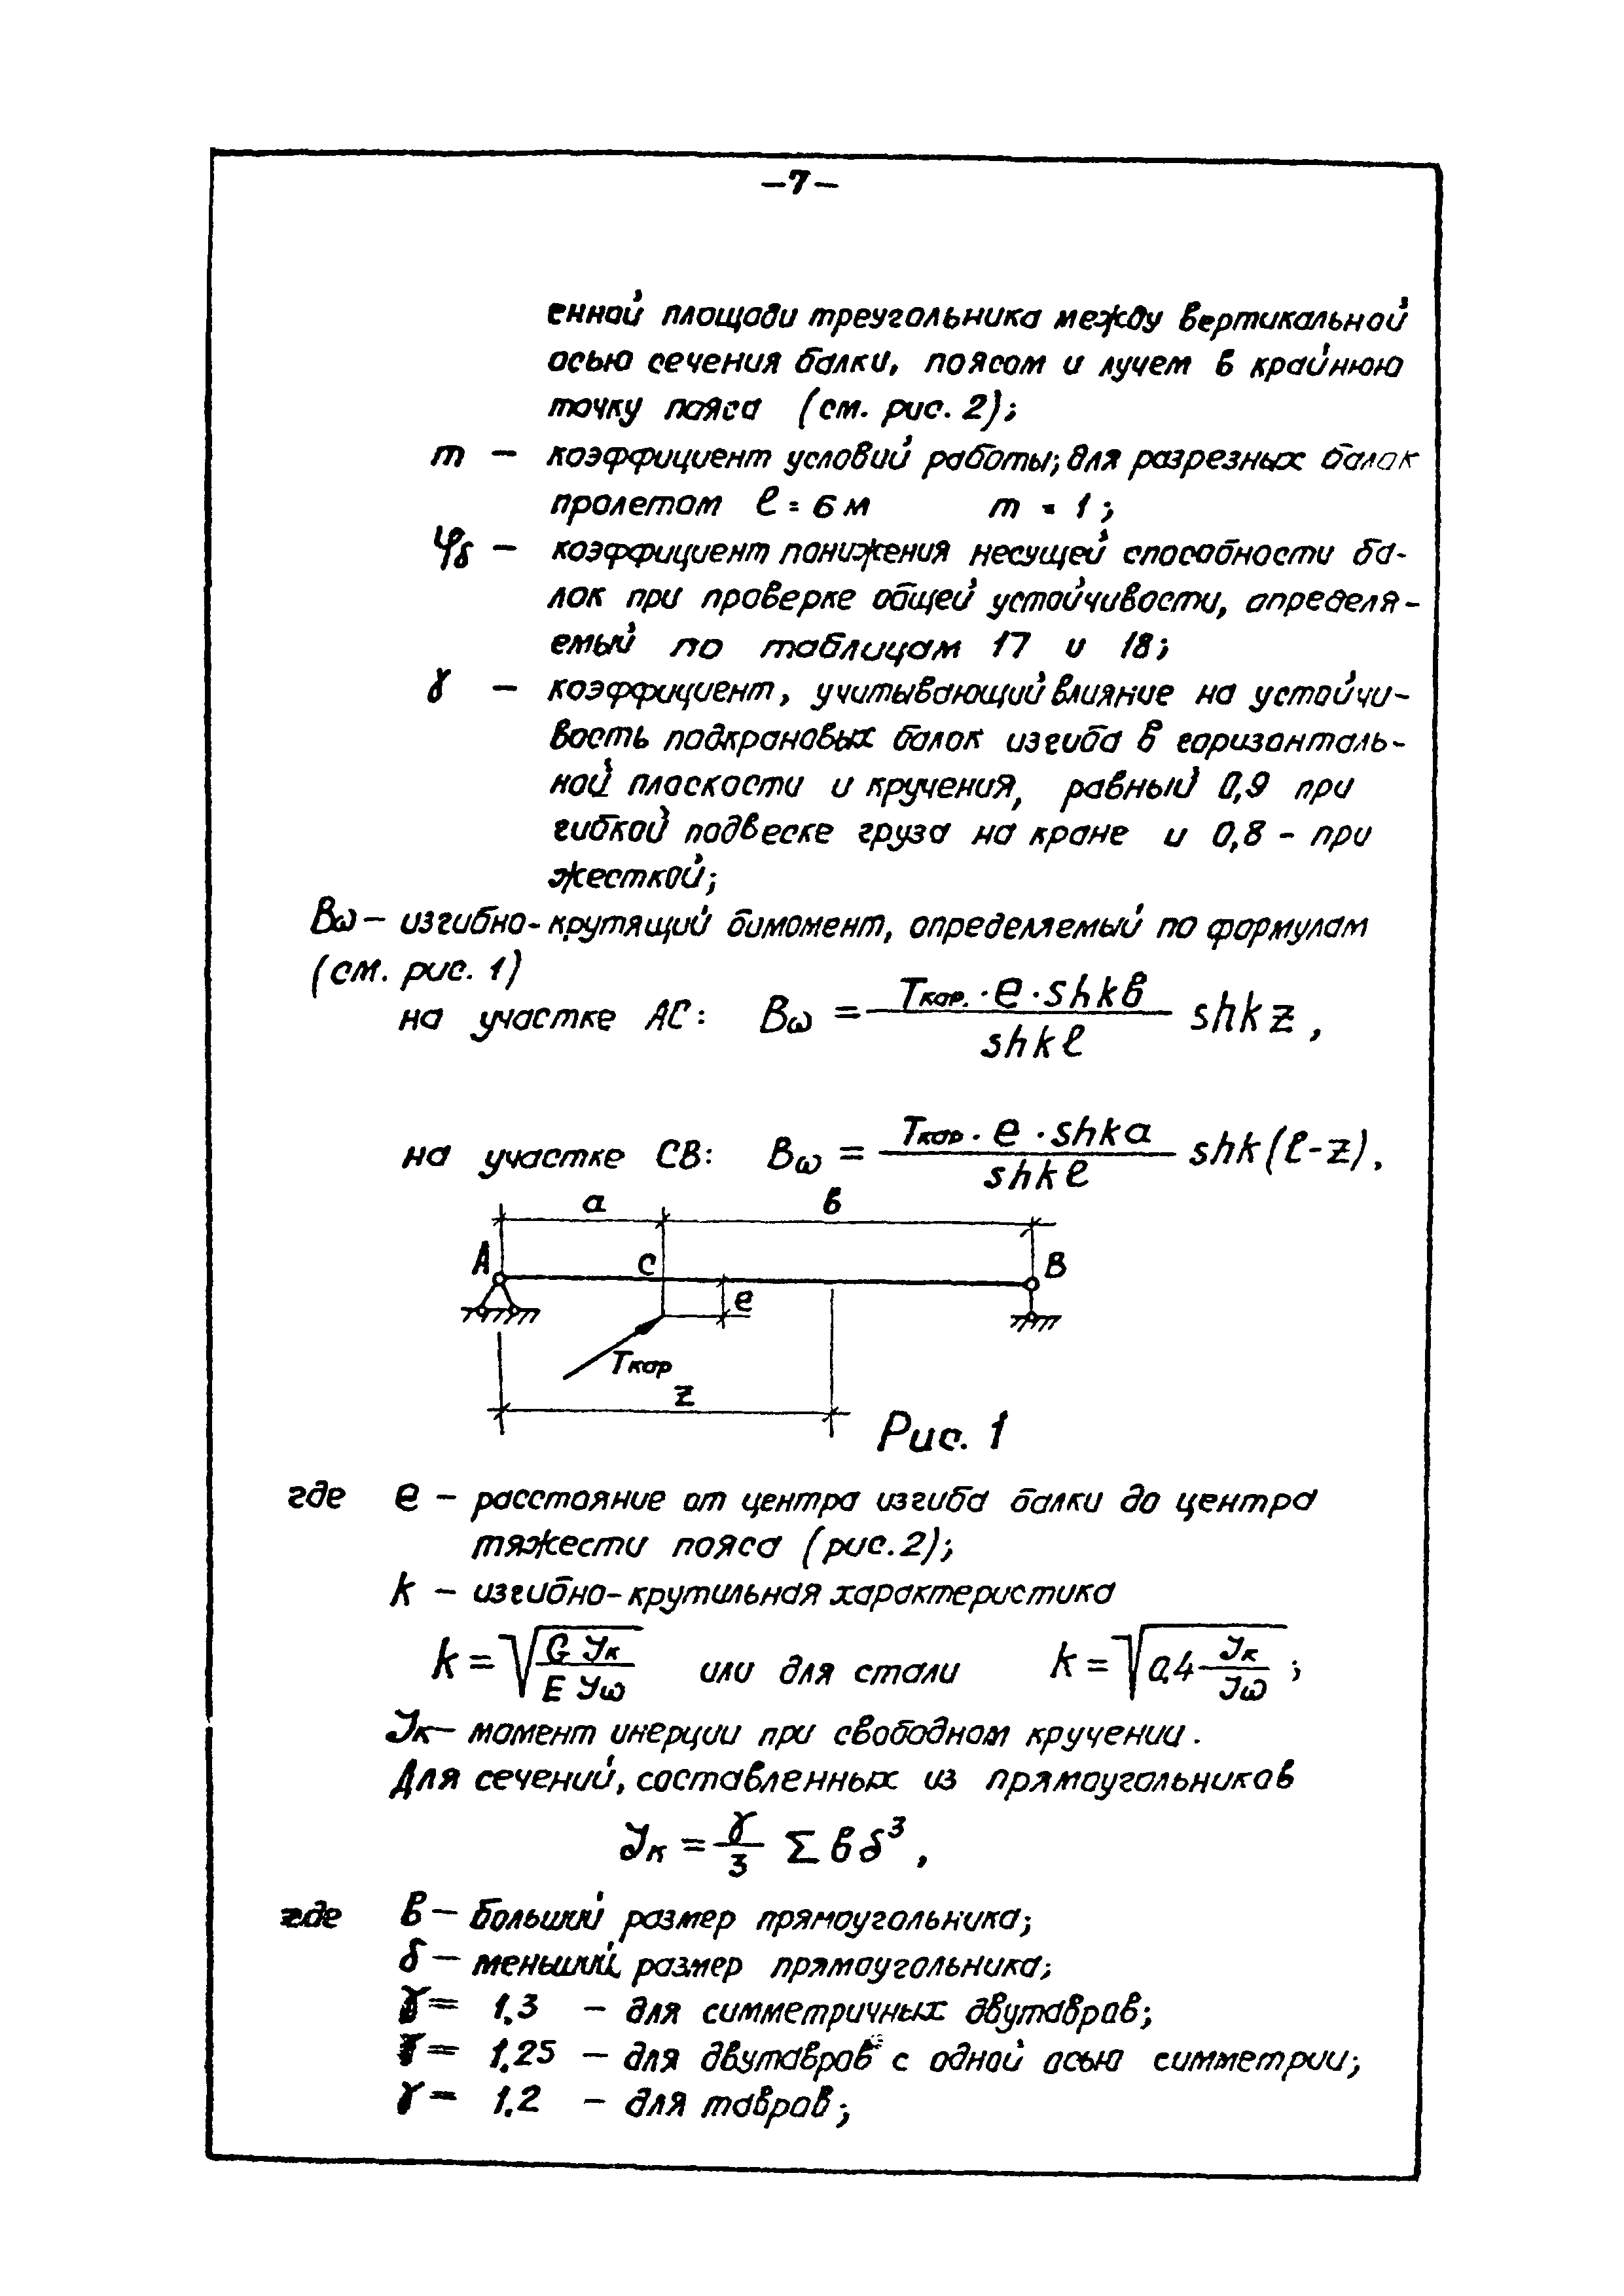 –7–
енной площади треугольника между вертикальной
осью сечения балки, поясом и лучем в крайнюю
точку пояса (см. рис. 2);
m – коэффициент условий работы; для разрезных балок
пролетом ℓ = 6 м m = 1;
φδ – коэффициент понижения несущей способности ба-
лок при проверке общей устойчивости, определя-
емый по таблицам 17 и 18;
γ – коэффициент, учитывающий влияние на устойчи-
вость подкрановых балок изгиба в горизонталь-
ной плоскости и кручения, равный 0,9 при
гибкой подвеске груза на кране и 0,8 - при
жесткой;
Bω – изгибно-крутящий бимомент, определяемый по формулам
(см. рис. 1)
на участке АС: Bω = (Tкор. · e · shkв / shkℓ) shkz,
на участке СВ: Bω = (Tкор · e · shka / shkℓ) shk(ℓ-z).
a в
A C B
e
Tкор
z
Рис. 1
где e – расстояние от центра изгиба балки до центра
тяжести пояса (рис. 2);
k – изгибно-крутильная характеристика
k = √(G Jк / E Jω) или для стали k = √(0.4 Jк / Jω);
Jк – момент инерции при свободном кручении.
Для сечений, составленных из прямоугольников
Jк = γ/3 Σ вδ³,
где в – больший размер прямоугольника;
δ – меньший размер прямоугольника;
γ = 1.3 – для симметричных двутавров;
γ = 1.25 – для двутавров с одной осью симметрии;
γ = 1.2 – для тавров;